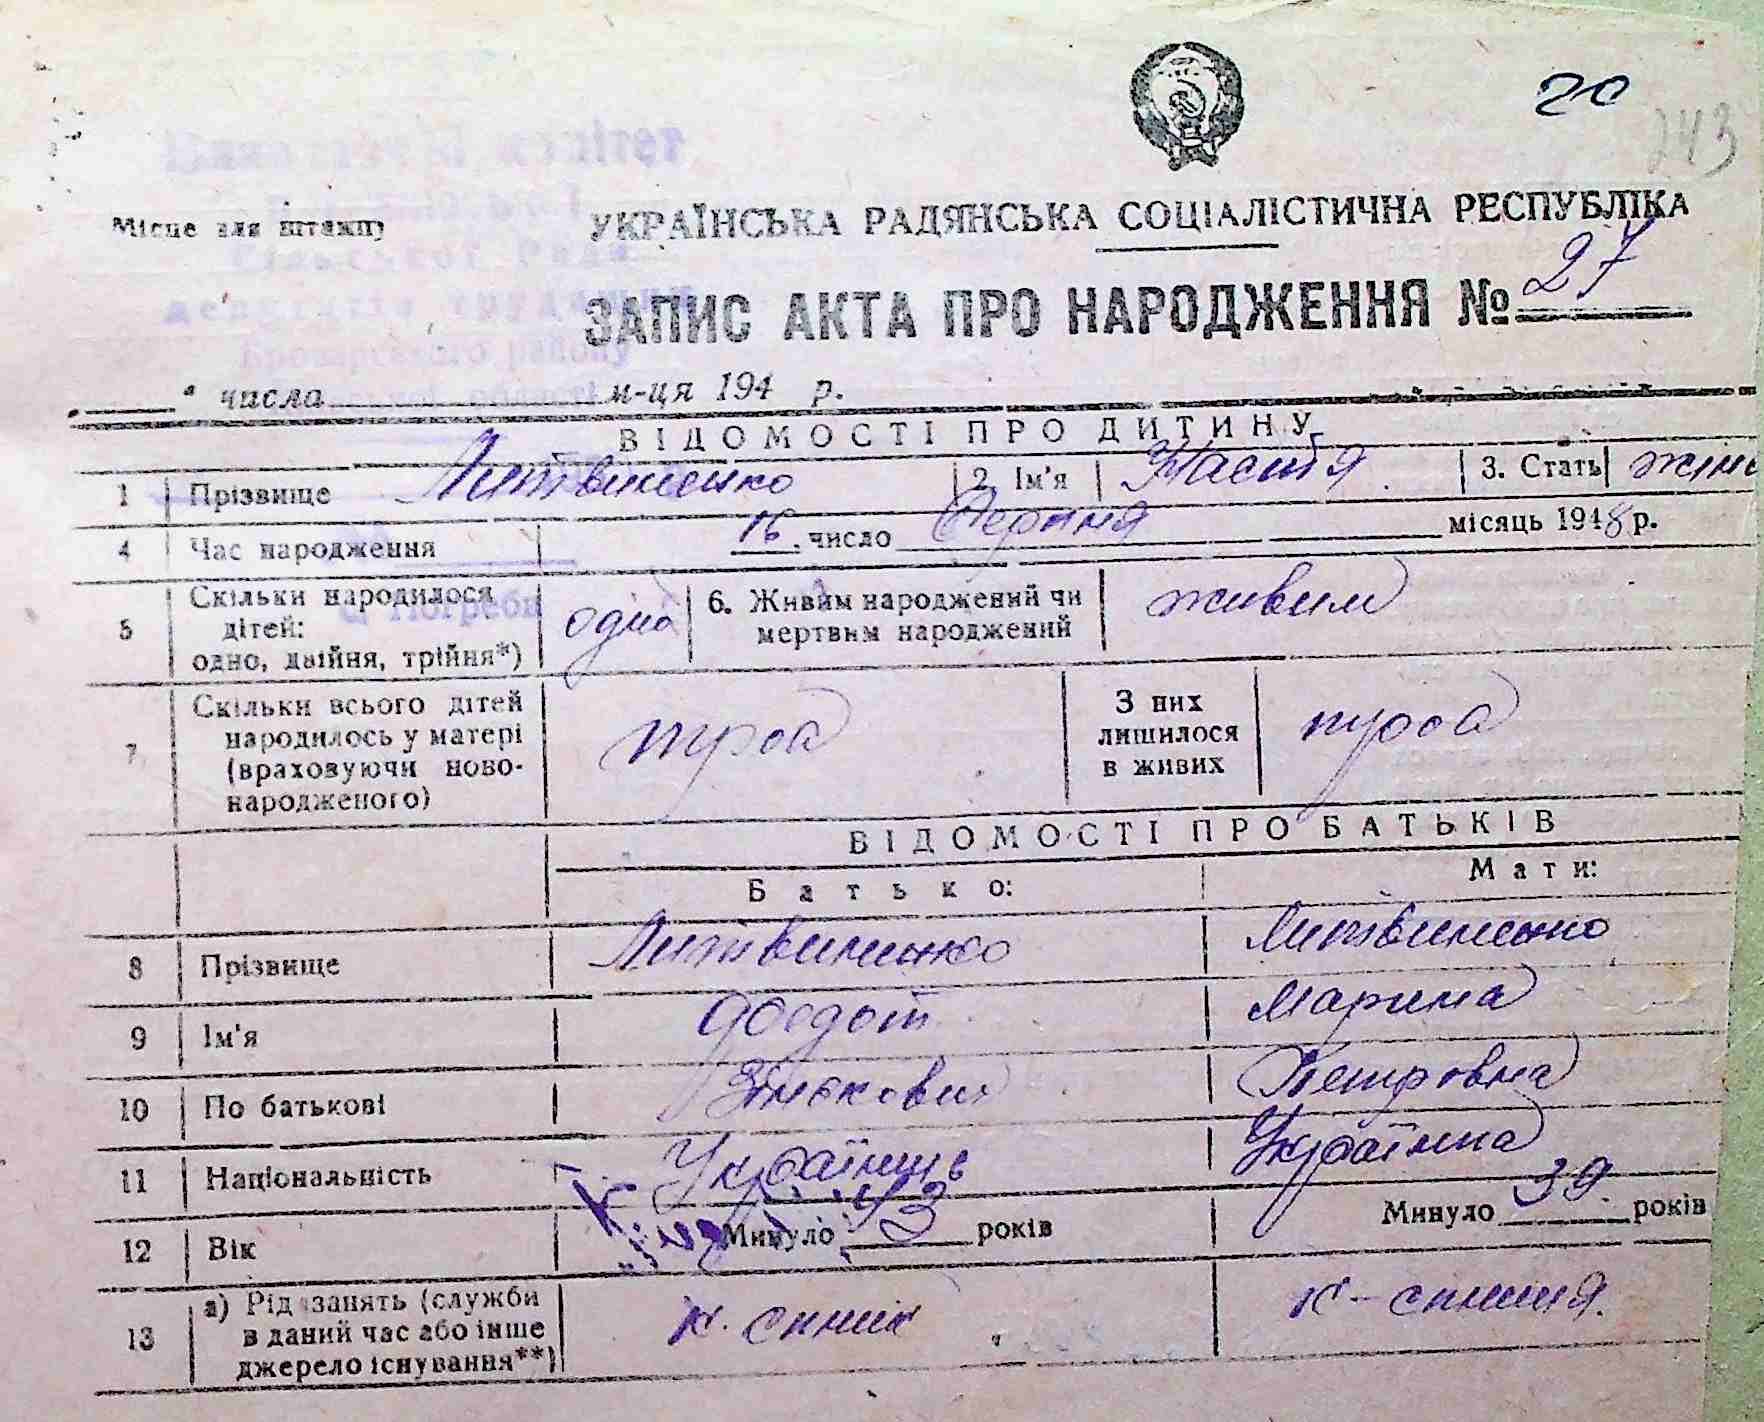 20
243
комітет
Місце для штампу
УКРАЇНСЬКА РАДЯНСЬКА СОЦІАЛІСТИЧНА РЕСПУБЛІКА
Сільської Ради
депутатів трудящих
ЗАПИС АКТА ПРО НАРОДЖЕННЯ № 27
Броварського району
" числа м-ця 194 р.
області
ВІДОМОСТІ ПРО ДИТИНУ
1 Прізвище Литвиненко 2. Ім'я Настя 3. Стать жін
4 Час народження 16 число Серпня місяць 1948 р.
5 Скільки народилося
дітей:
одно, двійня, трійня*) одна 6. Живим народжений чи
мертвим народжений живим
с Погреби
7 Скільки всього дітей
народилось у матері
(враховуючи ново-
народженого) троа З них
лишилося
в живих троа
ВІДОМОСТІ ПРО БАТЬКІВ
Батько: Мати:
8 Прізвище Литвиненко Литвиненко
9 Ім'я Федот Марина
10 По батькові Петровна
11 Національність Українець Українка
12 Вік Минуло 43 років Минуло 39 років
13 а) Рід занять (служби
в даний час або інше
джерело існування**) к-спник к-спниця.